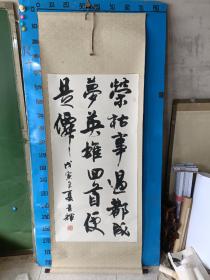 榮枯事過都成
夢英雄回首便
是僊
戊寅之夏